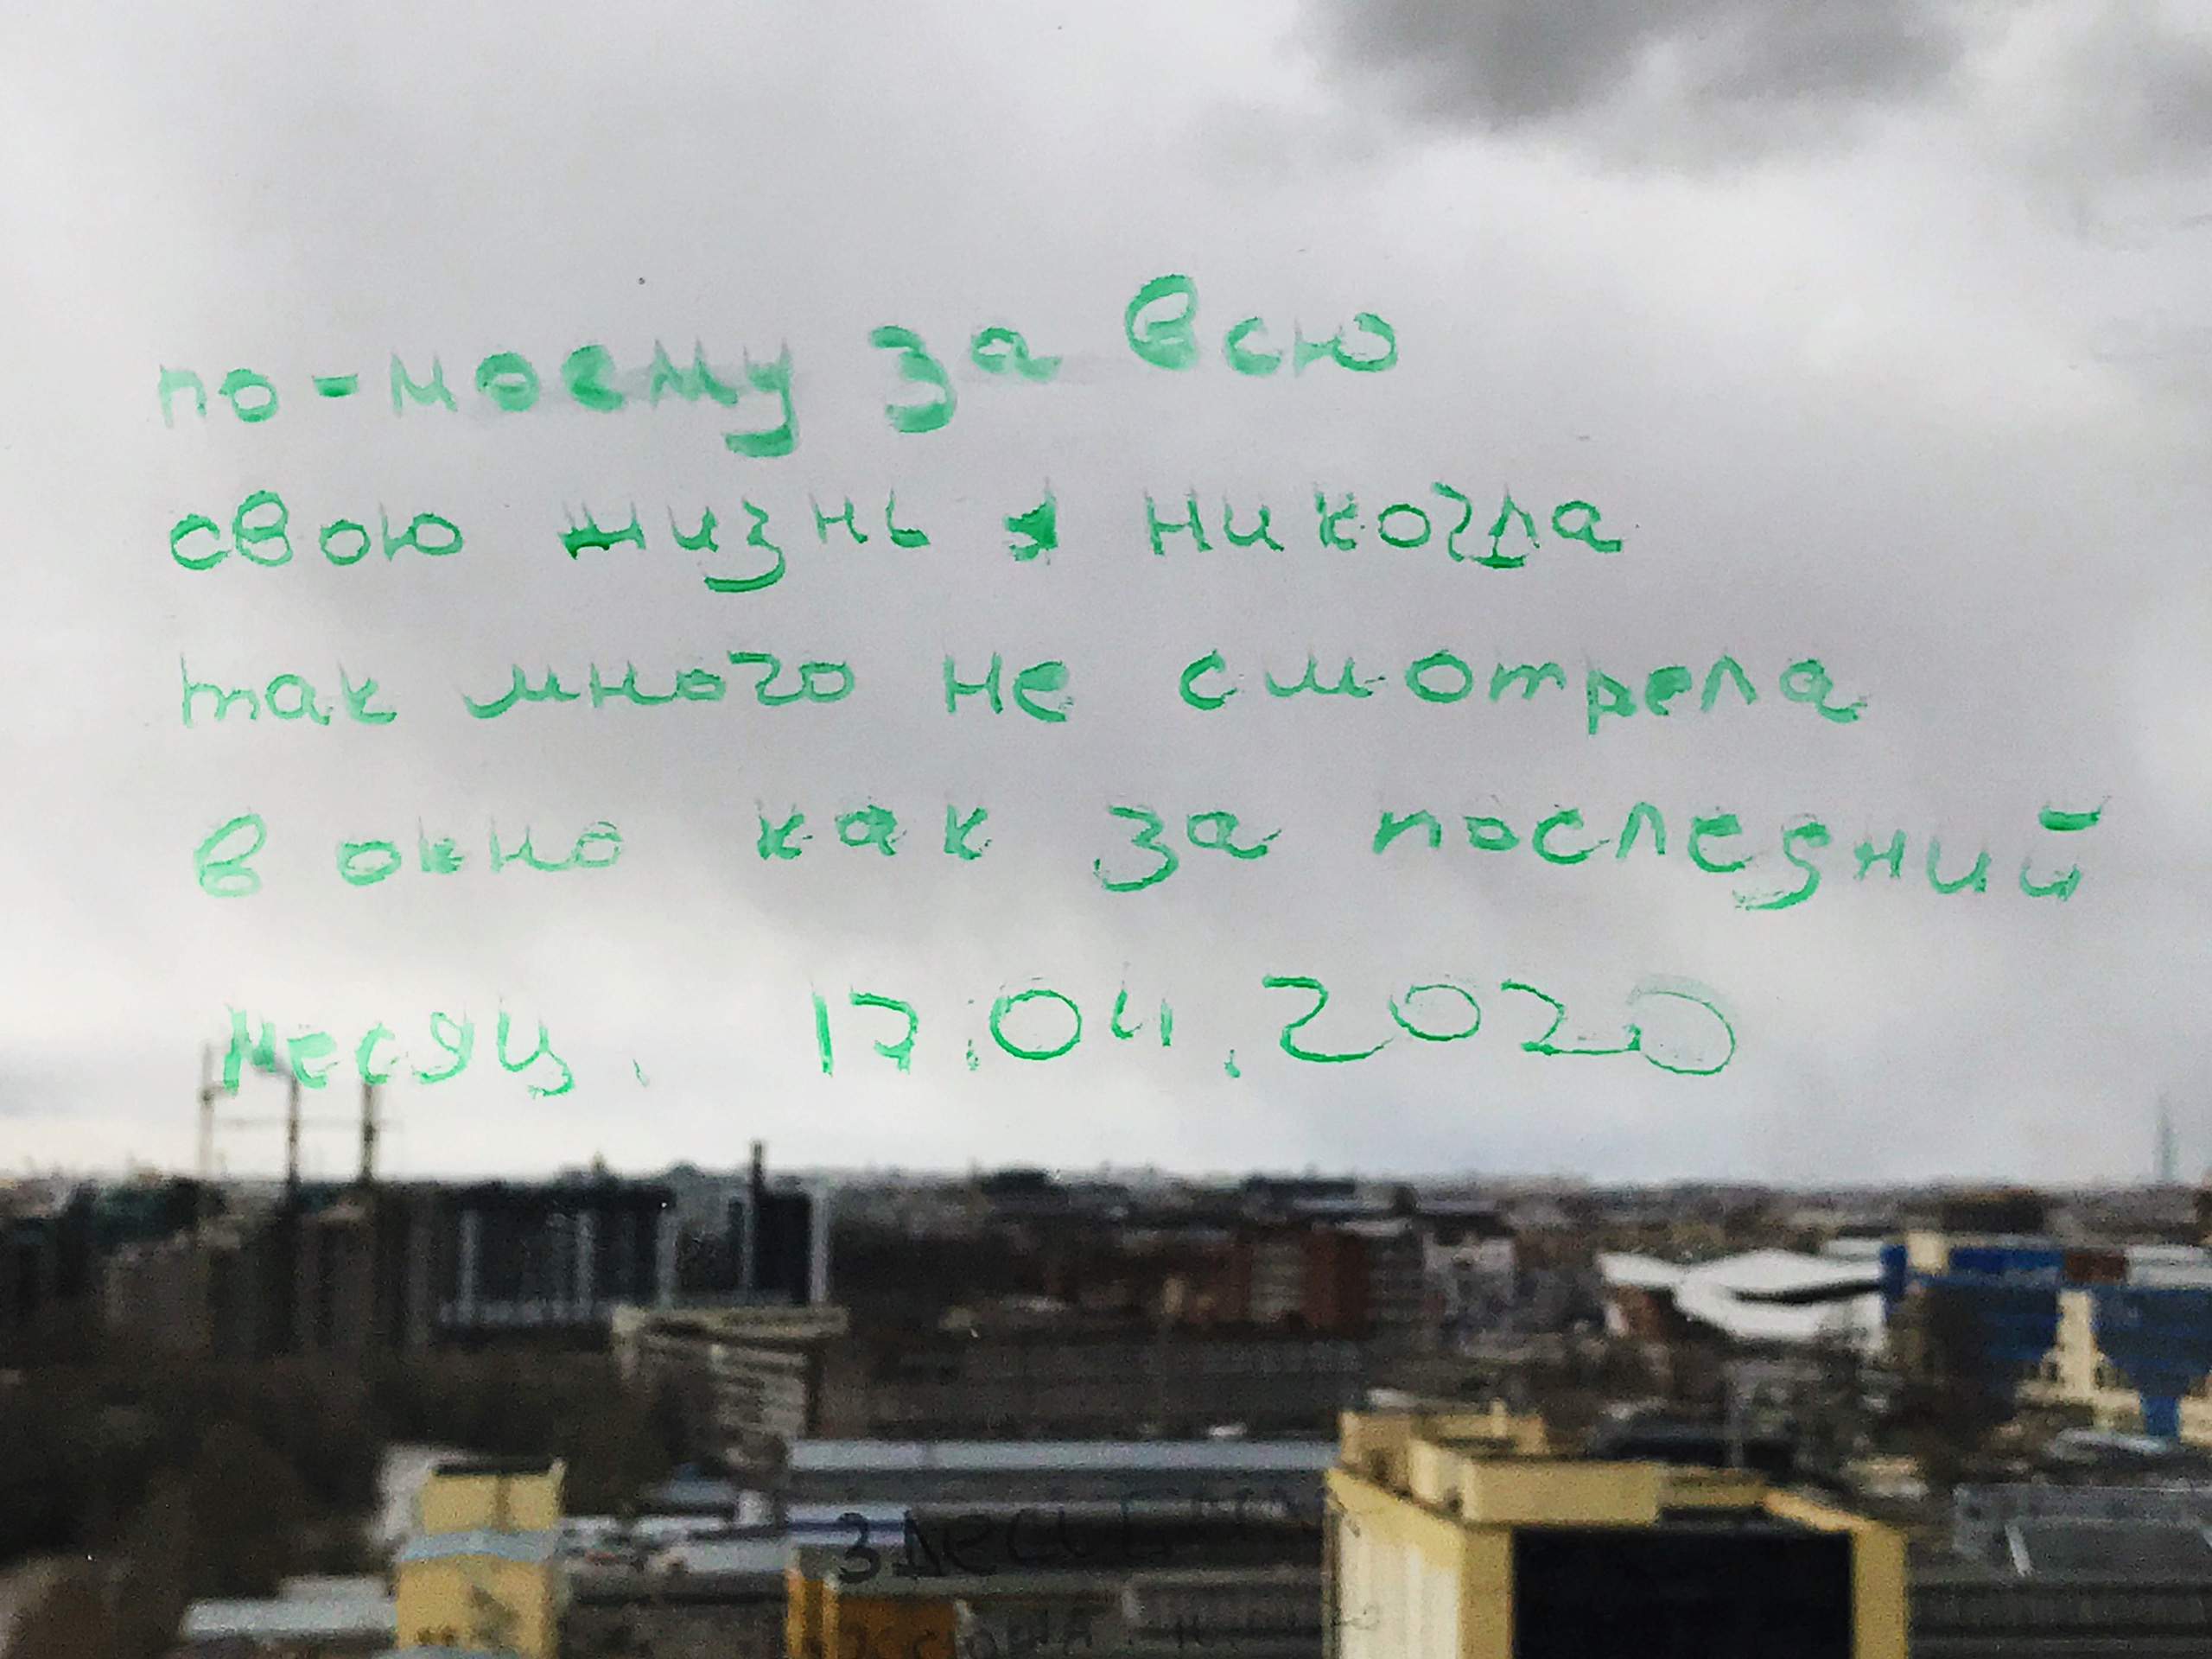 по-моему за всю
свою жизнь я никогда
так много не смотрела
в окно как за последний
месяц. 17.04.2020
здесь